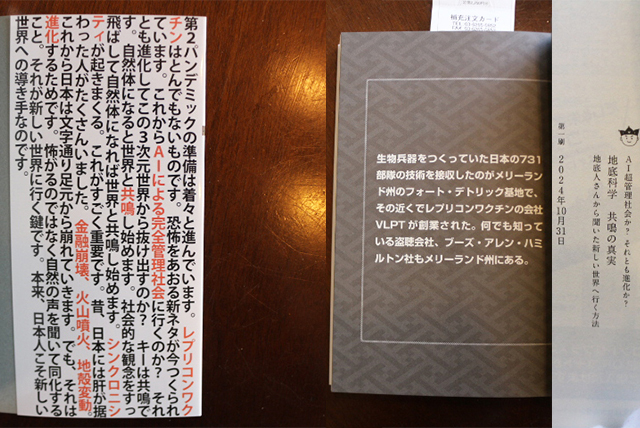 第2パンデミックの準備は着々と進んでいます。レプリコンワク
チンはとんでもないものです。恐怖をあおる新ネタが今つくられ
ています。これからAIによる完全管理社会に行くのか? それ
とも進化してこの3次元世界から抜け出すのか? キーは共鳴で
す。自然体になると世界と共鳴し始めます。社会的な観念をすっ
飛ばして自然体になれば世界と共鳴し始めます。シンクロニシ
ティが起きまくる。これがすごく重要です。昔、日本には肝が据
わった人がたくさんいました。金融崩壊、火山噴火、地殻変動。
これから日本は文字通り足元から崩れていきます。でも、それは
進化するためです。怖がるのではなく自然の声を聞いて同化する
こと。それが新しい世界に行く鍵です。本来、日本人こそ新しい
世界への導き手なのです。
補充注文カード
生物兵器をつくっていた日本の731
部隊の技術を接収したのがメリーラン
ド州のフォート・デトリック基地で、
その近くでレプリコンワクチンの会社
VLPTが創業された。何でも知って
いる盗聴会社、ブーズ・アレン・ハミ
ルトン社もメリーランド州にある。
AI超管理社会か? それとも進化か?
地底科学 共鳴の真実
地底人さんから聞いた新しい世界へ行く方法
第一刷 2024年10月31日